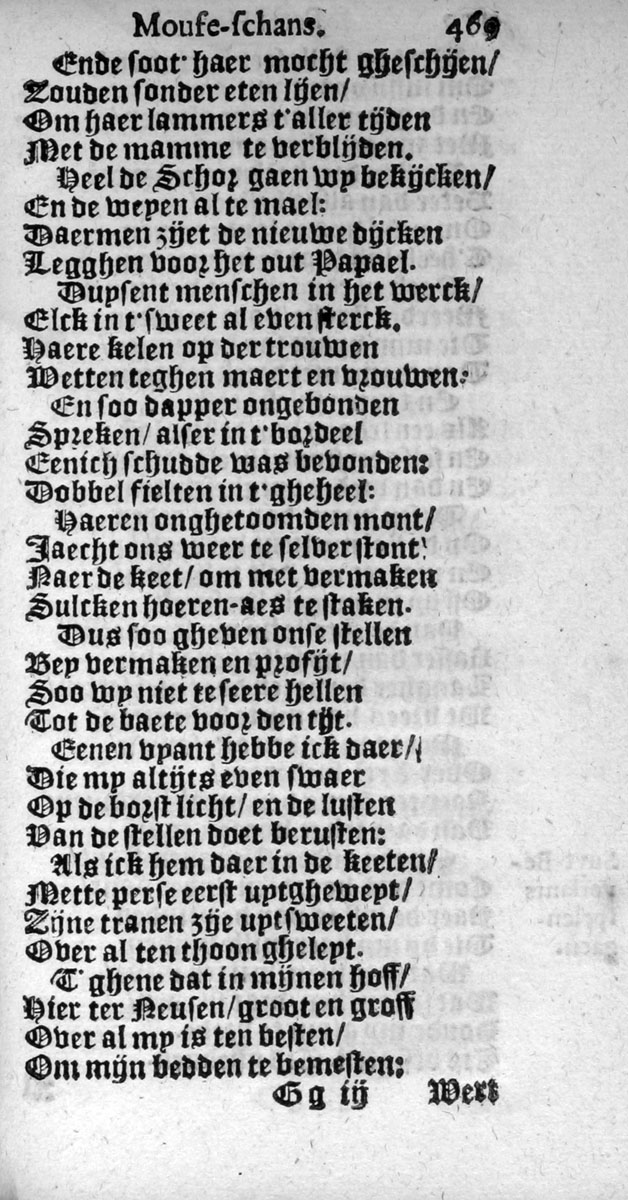 Mouse-schans. 469
Ende soot' haer mocht gheschijen/
Zouden sonder eten lijen/
Om haer lammers t'aller tijden
Met de mamme te verblijden.
Heel de Schor gaen wy bekijcken/
En de weyen al te mael:
Daermen zijet de nieuwe dijcken
Legghen voor het out Papael.
Duysent menschen in het werck/
Elck in t'sweet al even sterck.
Haere kelen op der trouwen
Wetten teghen maert en vrouwen:
En soo dapper ongebonden
Spreken/ alser in t'bordeel
Eenich schudde was bevonden:
Dobbel fielten in t'gheheel:
Haeren onghetoomden mont/
Jaecht ons weer te selver stont
Naer de keet/ om met vermaken
Sulcken hoeren-aes te staken.
Dus soo gheven onse stellen
Bey vermaken en profijt/
Soo wy niet te seere hellen
Tot de baete voor den tijt.
Eenen vyant hebbe ick daer/
Die my altijts even swaer
Op de borst licht/ en de lusten
Van de stellen doet berusten:
Als ick hem daer in de keeten/
Mette perse eerst uytgheweypt/
Zijne tranen zije uytsweeten/
Over al ten thoon gheleyt.
T'ghene dat in mijnen hoff/
Hier ter Neusen/ groot en groff
Over al my is ten besten/
Om mijn bedden te bemesten:
Gg ij Wert